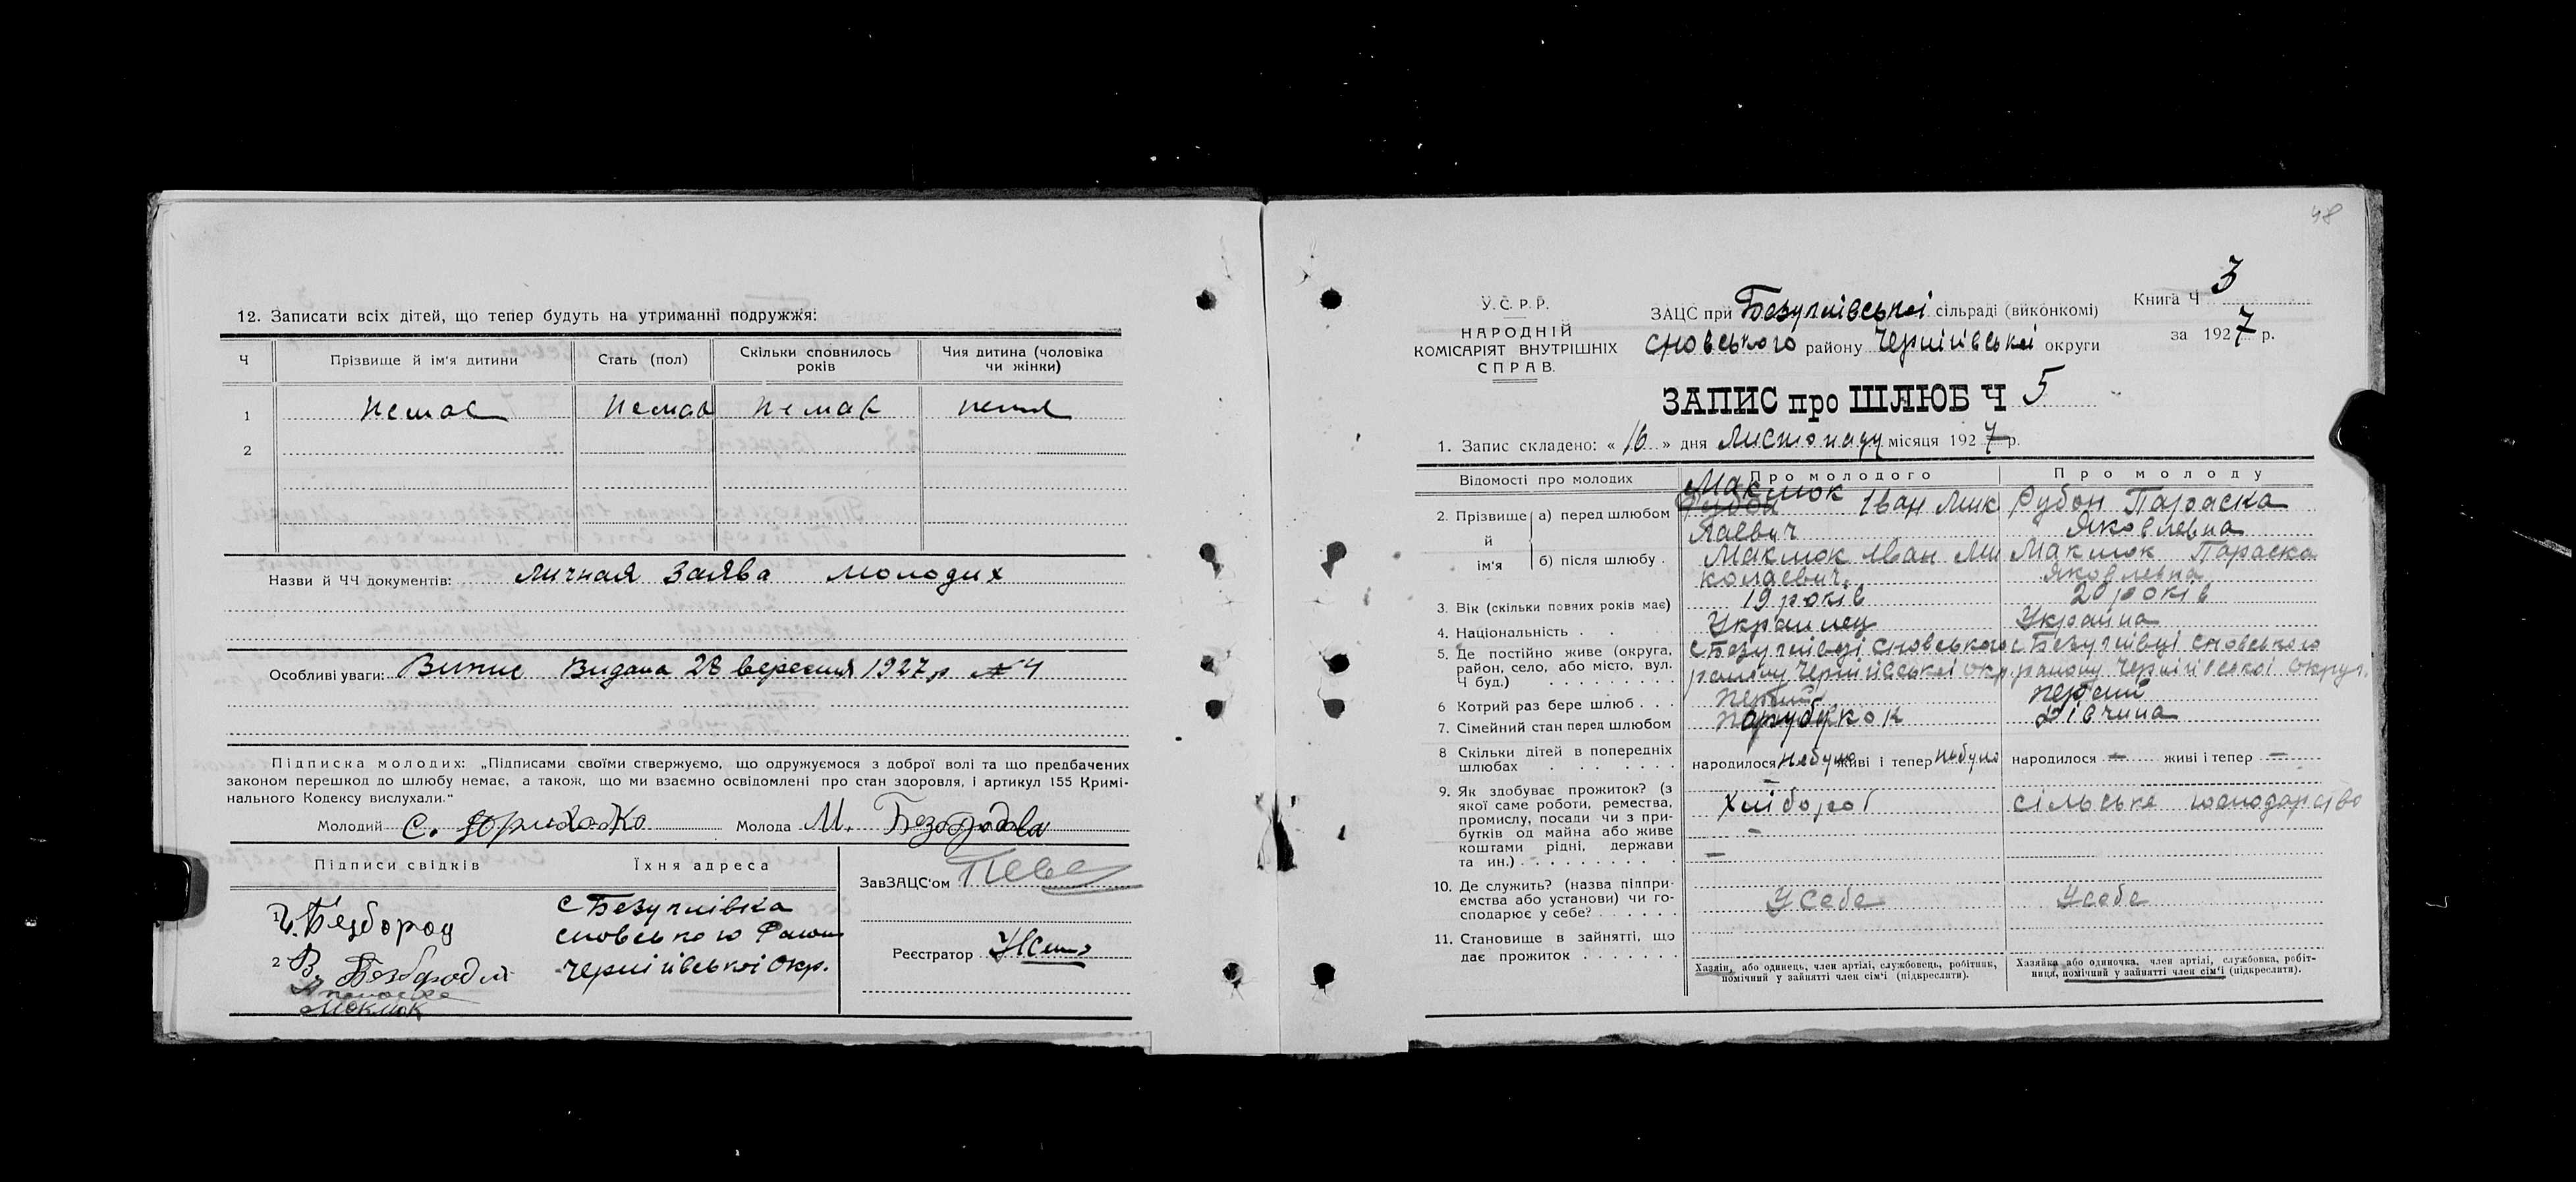 12. Записати всіх дітей, що тепер будуть на утриманні подружжя:
Ч
Прізвище й ім'я дитини
Стать (пол)
Скільки сповнилось
років
Чия дитина (чоловіка
чи жінки)
1 Немає Немає Немає
2
Назви й ЧЧ документів: Личная Заява молодих
Особливі уваги: Випис Видана 28 вересня 1927 р № 4
Підписка молодих: „Підписами своїми ствержуємо, що одружуємося з доброї волі та що предбачених
законом перешкод до шлюбу немає, а також, що ми взаємно освідомлені про стан здоровля, і артикул 155 Кримі-
нального Кодексу вислухали."
Молодий С. Молода М. Безородова
Підписи свідків
Їхня адреса
1 Безбород
2 Безбородь
Макмок
с Безуглівка
Сновського Району
Чернігівської Окр.
ЗавЗАЦС'ом
Реєстратор
48
У.С.Р.Р.
НАРОДНІЙ
КОМІСАРІЯТ ВНУТРІШНІХ
СПРАВ.
ЗАЦС при Безуглівської сільраді (виконкомі)
Сновського району Чернігівської округи
Книга Ч 3
за 1927 р.
ЗАПИС про ШЛЮБ Ч 5
1. Запис складено: « 16 » дня Листопаду місяця 1927 р.
Відомості про молодих
Про молодого
Про молоду
2. Прізвище й ім'я
а) перед шлюбом
Макмок Іван Мик
лаевич
Рубон Параска
Яковлевна
б) після шлюбу .
Макмок Иван Ми
колаевич.
Макмок Параска
Яковлевна
3. Вік (скільки повних років має)
19 років
20 років
4. Національність . .
Украинец
Украина
5. Де постійно живе (округа,
район, село, або місто, вул.
Ч буд.)
с Безуглівці Сновського
району Чернігівської Окр.
с Безуглівці Сновського
району Чернігівської Округ.
6 Котрий раз бере шлюб . . .
Первий
Первий
7. Сімейний стан перед шлюбом
Парубок
Дівчина
8 Скільки дітей в попередніх
шлюбах
народилося Небуло живі і тепер Небуло
народилося — живі і тепер —
9. Як здобуває прожиток? (з
якої саме роботи, ремества,
промислу, посади чи з при-
бутків од майна або живе
коштами рідні, держави
та ин.)
Хлібороб
—
—
сільське господарство
10. Де служить? (назва підпри-
ємства або установи) чи го-
сподарює у себе?
У Себе
У себе
11. Становище в зайнятті, що
дає прожиток
Хазяїн, або одинець, член артілі, службовець, робітник,
помічний у зайнятті член сім'ї (підкреслити).
Хазяйка або одиночка, член артілі, службовка, робіт-
ниця, помічний у зайнятті член сім'ї (підкреслити).